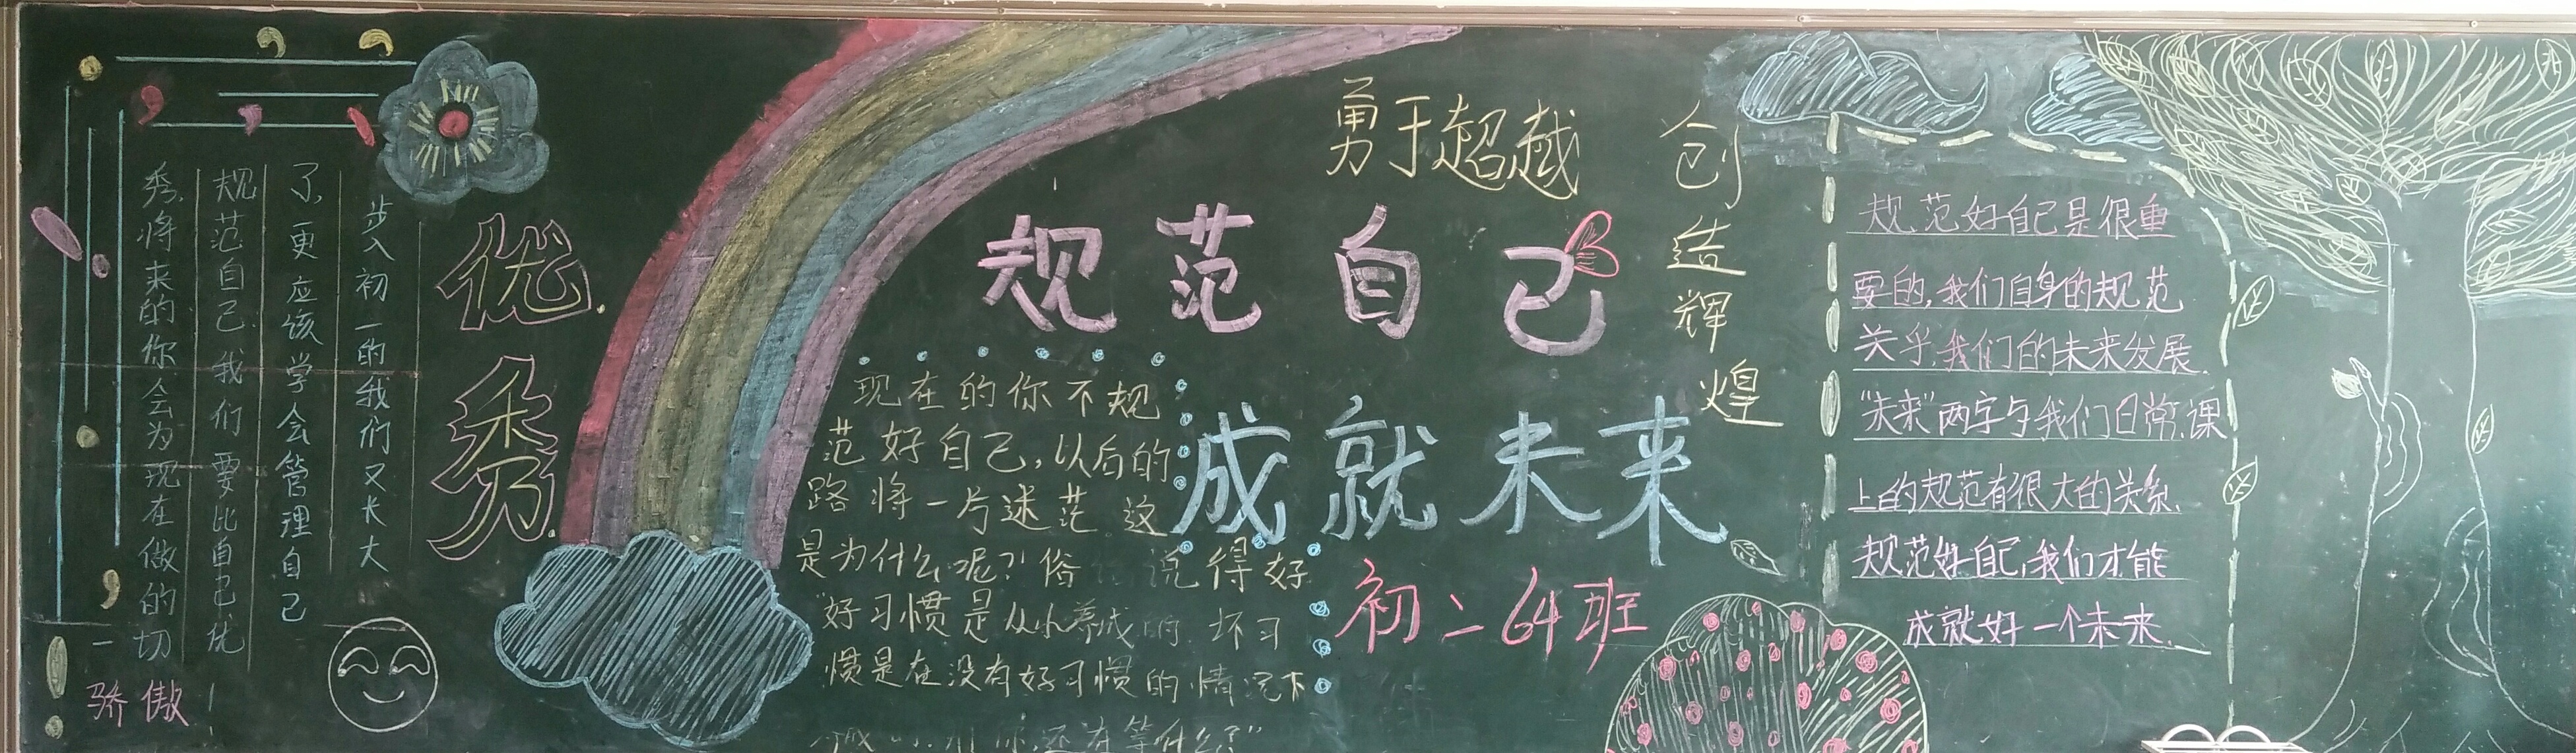 优秀
步入初一的我们又长大
了,更应该学会管理自己
规范自己.我们要比自己优
秀,将来的你会为现在做的一切
骄傲!
勇于超越
创造辉煌
规范自己
成就未来
初二64班
现在的你不规
范好自己,以后的
路将一片迷茫 这
是为什么呢?俗 说得好
"好习惯是从小养成的.坏习
惯是在没有好习惯的情况下
你还在等什么?"
规范好自己是很重
要的,我们自身的规范
关乎我们的未来发展.
"未来"两字与我们日常,课
上的规范有很大的关系.
规范好自己,我们才能
成就好一个未来.